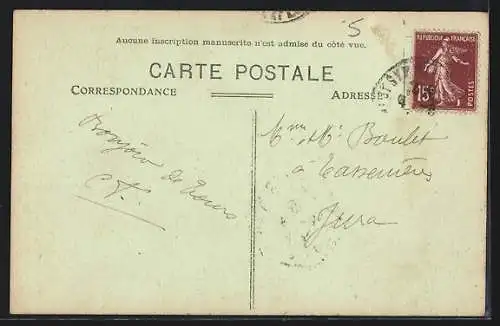 5
Aucune inscription manuscrite n'est admise du côté vue.
CARTE POSTALE
CORRESPONDANCE
ADRESSE
REPUBLIQUE FRANÇAISE
15c
POSTES
Bonjour de nous
C.T.
Mme et Mr Boulet
à Tassenières
Jura